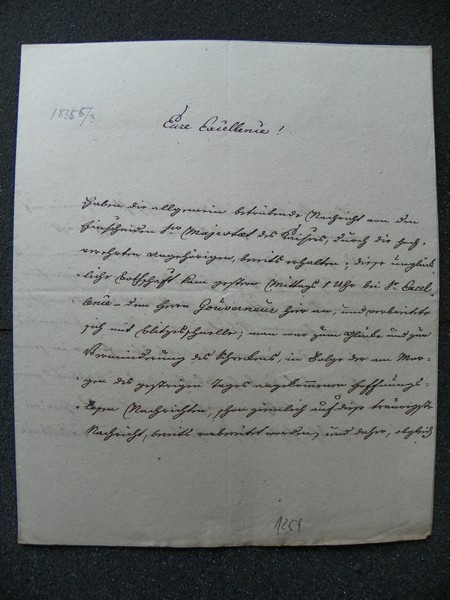 1835 5/3
Eure Excellence!
Haben die allgemein betrübende Nachricht von dem
Hinscheiden Sr Majestaet des Kaisers, durch die hoch-
verehrten Angehörigen, bereits erhalten; diese unglück-
liche Bothschaft kam gestern Mittags 1 Uhr bei Sr Excel-
lence dem Herrn Gouverneur hier an, und verbreitete
sich mit Blitzesschnelle; man war zum Glücke und zur
Verminderung des Schreckens, in Folge der am Mor-
gen des gestrigen Tages angekommenen hoffnungs-
losen Nachrichten, schon ziemlich auf diese traurigste
Nachricht, bereits vorbereitet worden, und daher, obgleich